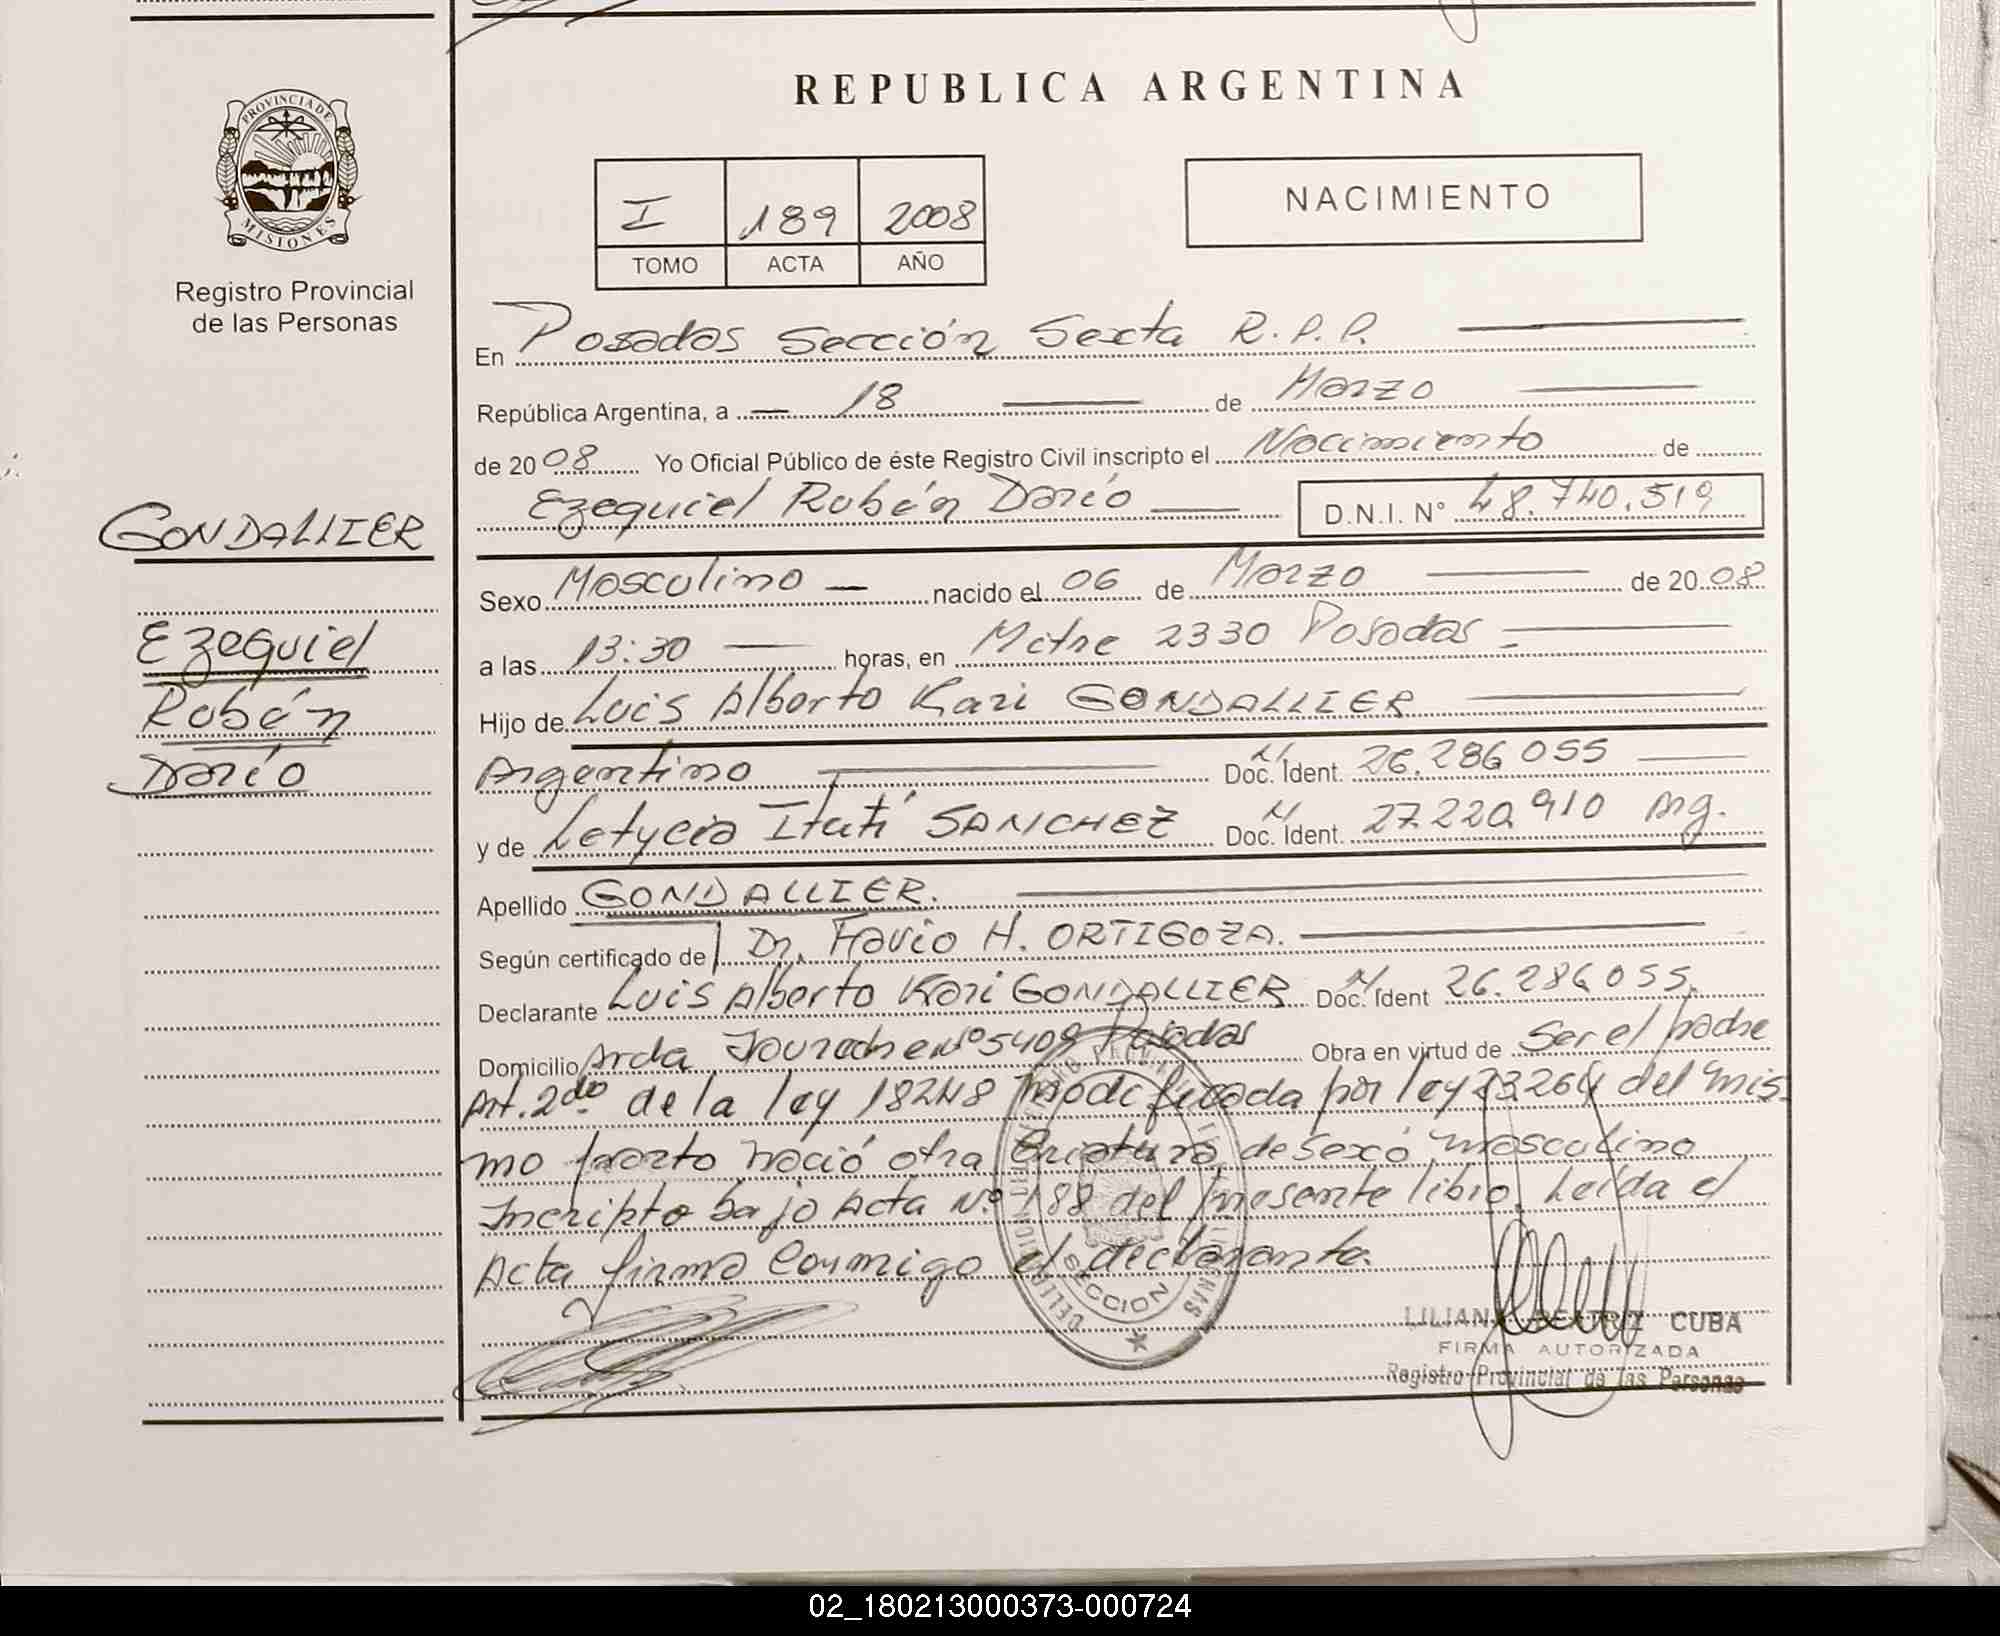 REPUBLICA ARGENTINA
PROVINCIA DE
MISIONES
Registro Provincial
de las Personas
I 189 2008
TOMO ACTA AÑO
NACIMIENTO
En Posadas Sección Sexta R.P.P.
República Argentina, a 18 de Marzo
de 2008 Yo Oficial Público de éste Registro Civil inscripto el Nacimiento de
Ezequiel Rubén Darío D.N.I. N° 48.740.519
GONDALLIER
Ezequiel
Rubén
Darío
Sexo Masculino nacido el 06 de Marzo de 2008
a las 13:30 horas, en Mitre 2330 Posadas
Hijo de Luis Alberto Kari GONDALLIER
Argentino Doc. Ident. 26.286.055
y de Letycia Itatí SANCHEZ Doc. Ident. 27.220.910 Arg.
Apellido GONDALLIER.
Según certificado de Dr. Flavio H. ORTIGOZA.
Declarante Luis Alberto Kari GONDALLIER Doc. Ident 26.286.055.
Domicilio N°5409 Posadas Obra en virtud de Ser el padre
Art. 2do de la ley 18248 modificada por ley 23.264 del mis-
mo parto nació otra Criatura de sexo masculino
Incripto bajo Acta N° 188 del presente libro. Leída el
Acta firma Conmigo el declarante.
SECCION
LILIANA BEATRIZ CUBA
FIRMA AUTORIZADA
Registro Provincial de las Personas
02_180213000373-000724